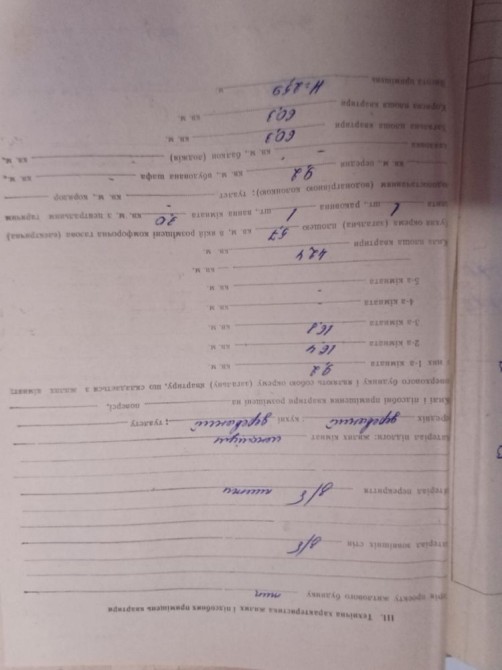 III. Технічна характеристика жилих і підсобних приміщень квартири
проекту житлового будинку тип
зовнішніх стін з/б
перекриття з/б плити
підлоги: жилих кімнат
дерев'яний кухні дерев'яний; туалету
і підсобні приміщення квартири розміщені на поверсі,
поверхового будинку і являють собою окрему (загальну) квартиру, що складається з жилих кімнат:
з них 1-а кімната 9,2 кв. м.
2-а кімната 16,4 кв. м
3-а кімната 16,8 кв. м
4-а кімната - кв. м
5-а кімната - кв. м.
кв. м.
площа квартири 42,4 кв. м
Кухня окрема (загальна) площею 5,7 кв. м, в якій розміщені комфорочна газова (електрична)
плита 1 шт., раковина 1 шт., ванна кімната 2,0 кв. м, з центральним гарячим
водопостачанням (водогрійною колонкою); туалет кв. м, коридор
кв. м, передня 9,2 кв. м, вбудована шафа - кв. м,
- кв. м., балкон (лоджія) - кв. м,
Загальна площа квартири 60,3 кв. м
Корисна площа квартири 60,3 кв. м
Висота приміщень Н=2,59 м